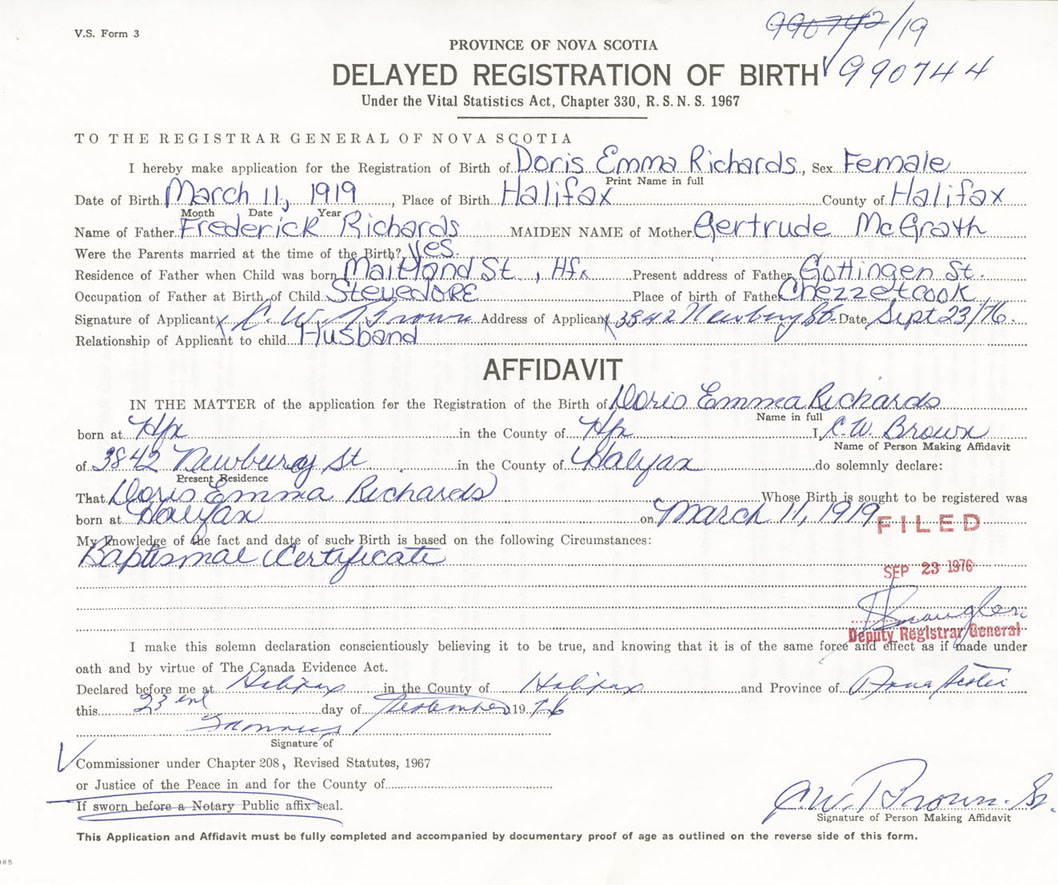 V.S. Form 3
990742/19
PROVINCE OF NOVA SCOTIA
DELAYED REGISTRATION OF BIRTH 990744
Under the Vital Statistics Act, Chapter 330, R.S.N.S. 1967
TO THE REGISTRAR GENERAL OF NOVA SCOTIA
I hereby make application for the Registration of Birth of Doris Emma Richards, Sex Female
Print Name in full
Date of Birth March 11, 1919 Place of Birth Halifax County of Halifax
Month Date Year
Name of Father Frederick Richards MAIDEN NAME of Mother Gertrude McGrath
Were the Parents married at the time of the Birth? Yes.
Residence of Father when Child was born Maitland St, Hfx Present address of Father Gottingen St.
Occupation of Father at Birth of Child Stevedore Place of birth of Father Chezzetcook
Signature of Applicant x C. W. Brown Address of Applicant x 3842 Newbury St. Date Sept 23/76.
Relationship of Applicant to child Husband
AFFIDAVIT
IN THE MATTER of the application for the Registration of the Birth of Doris Emma Richards
Name in full
born at Hfx in the County of Hfx I, C.W. Brown
Name of Person Making Affidavit
of 3842 Newburg St in the County of Halifax do solemnly declare:
Present Residence
That Doris Emma Richards Whose Birth is sought to be registered was
born at Halifax on March 11, 1919
FILED
My knowledge of the fact and date of such Birth is based on the following Circumstances:
Baptismal Certificate
SEP 23 1976
Deputy Registrar General
I make this solemn declaration conscientiously believing it to be true, and knowing that it is of the same force and effect as if made under
oath and by virtue of The Canada Evidence Act.
Declared before me at Halifax in the County of Halifax and Province of Nova Scotia
this 23rd day of September 1976
Signature of
Commissioner under Chapter 208, Revised Statutes, 1967
or Justice of the Peace in and for the County of
If sworn before a Notary Public affix seal.
C.W. Brown. Sr.
Signature of Person Making Affidavit
This Application and Affidavit must be fully completed and accompanied by documentary proof of age as outlined on the reverse side of this form.